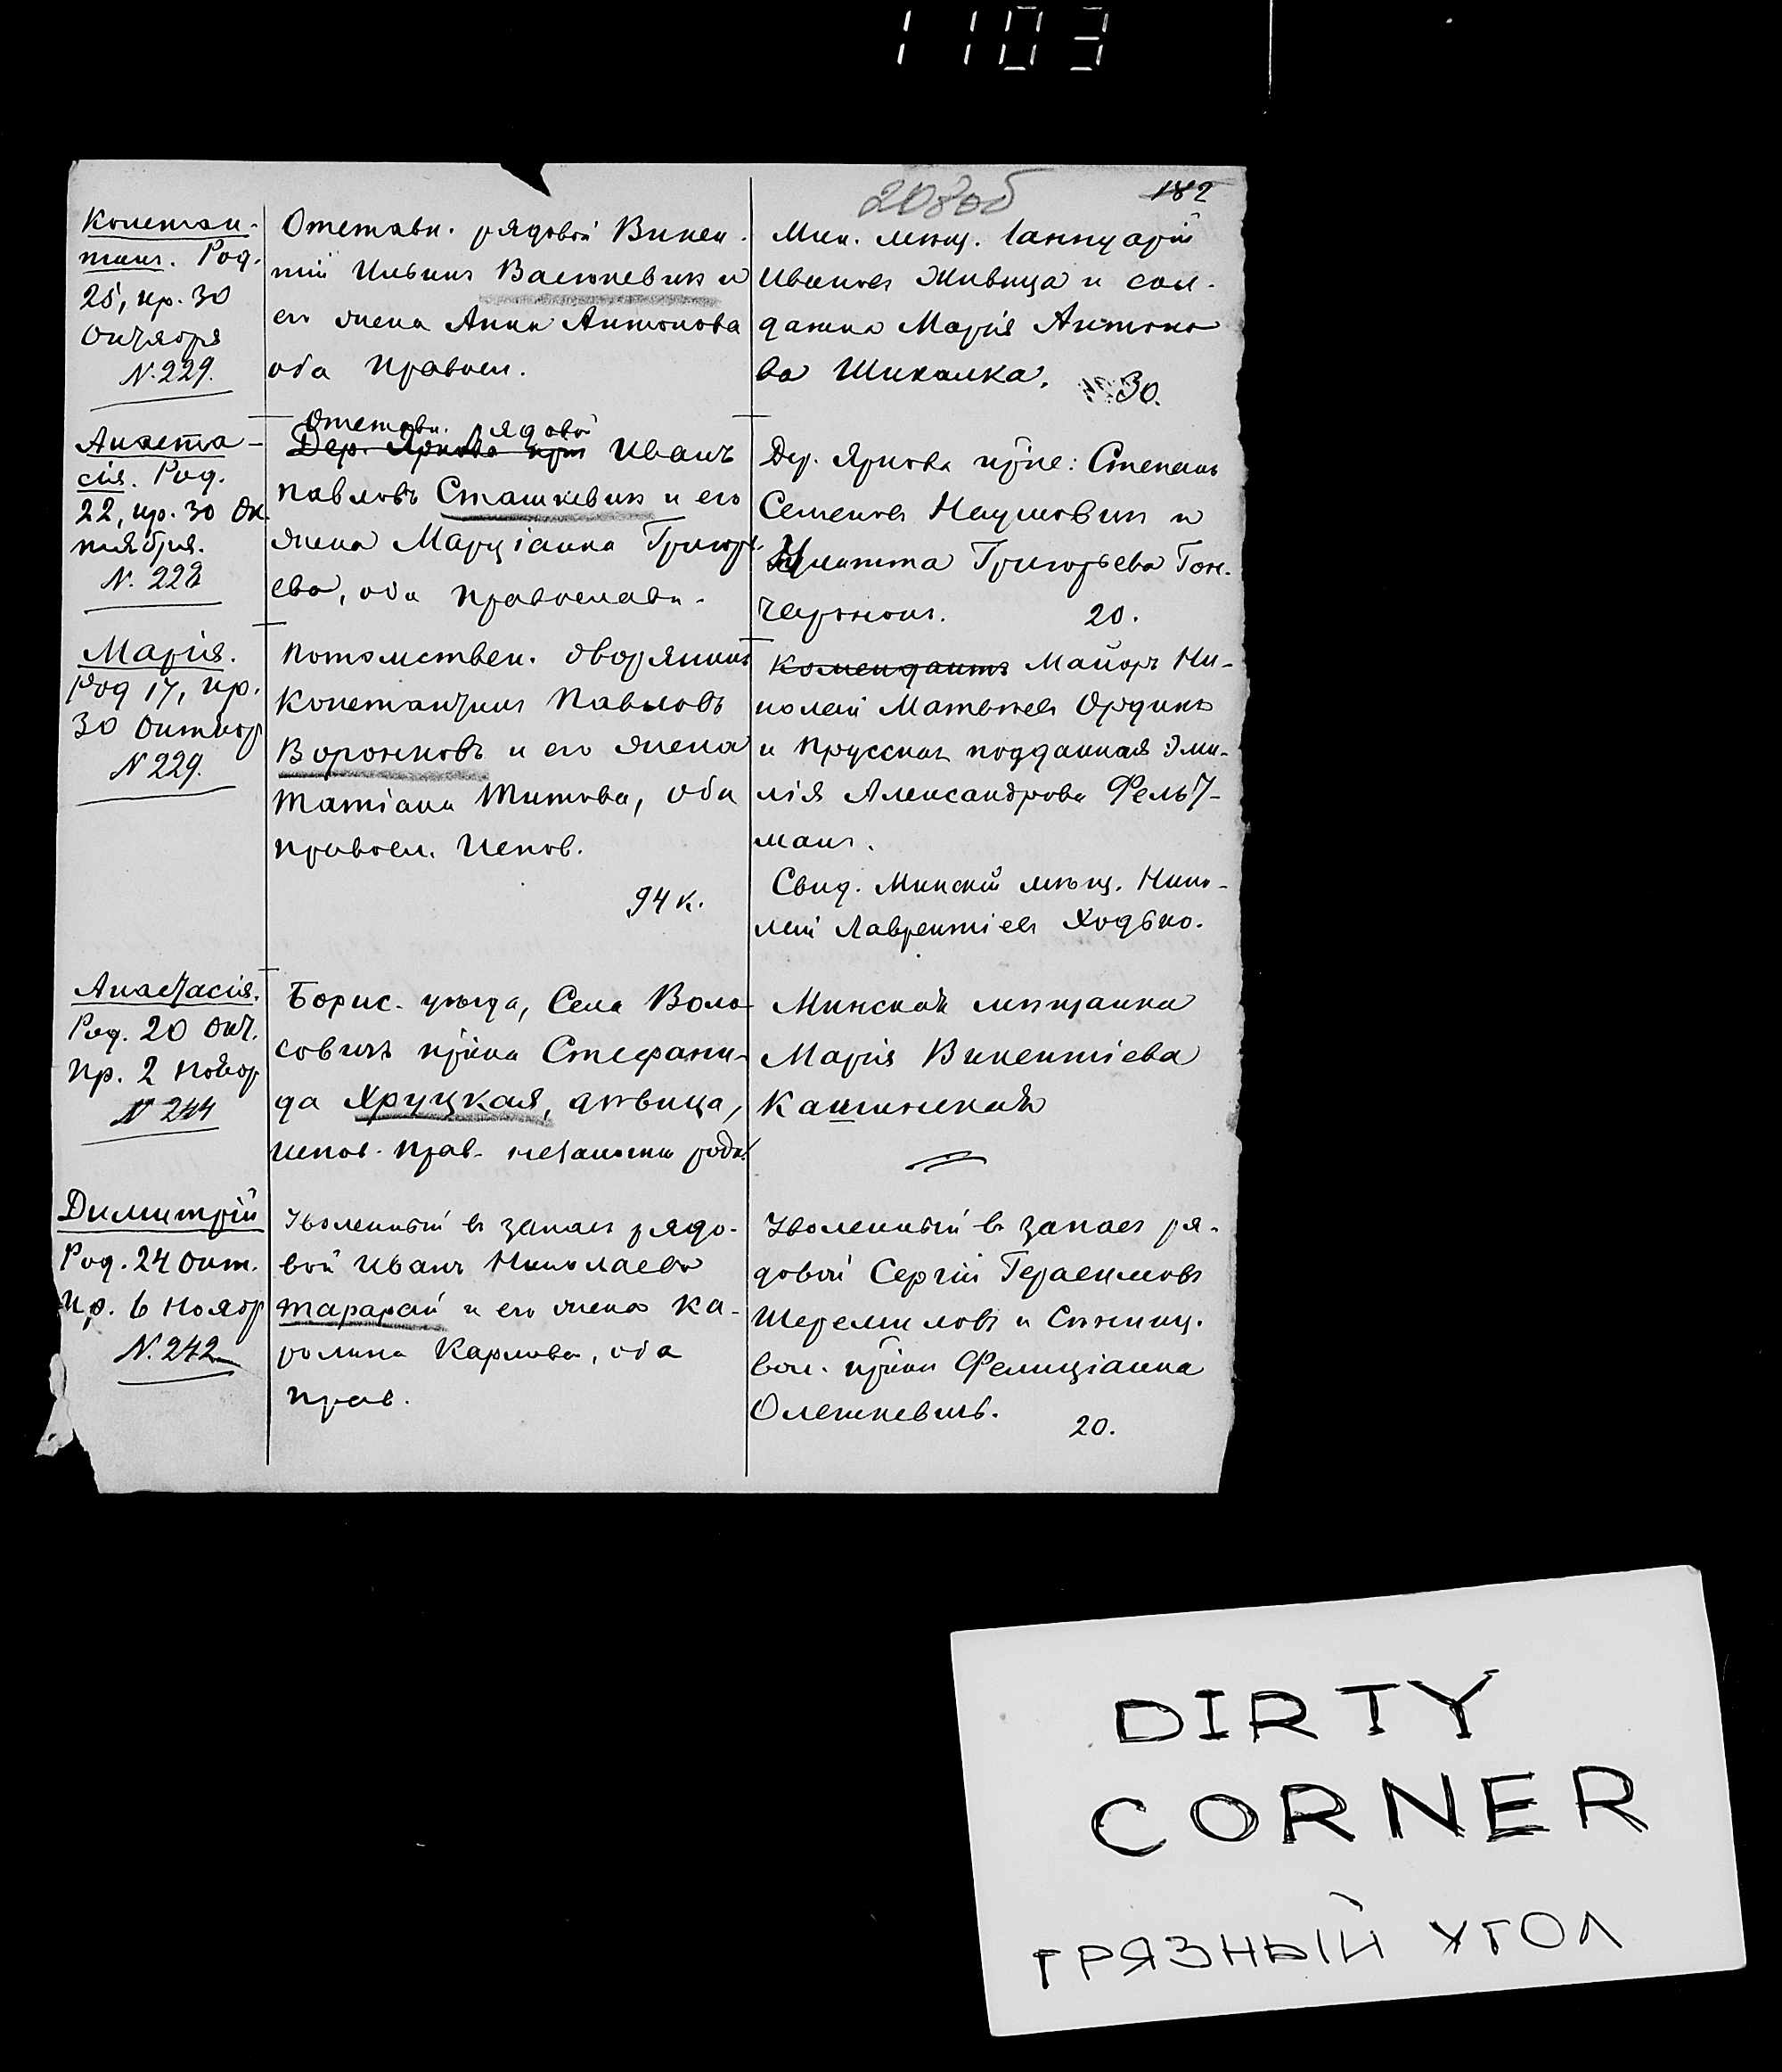 1103
208об
182
Констан-
тинъ. Род.
25, кр. 30
Октября
N. 229.
Отставн. рядовой Викен-
тій Ильинъ Васюкевичъ и
его жена Анна Антонова
оба правосл.
Мин. мѣщ. Іаннуарій
Ивановъ Живица и сол-
датка Марія Антоно
ва Шикалка.
30.
Анаста-
сія. Род.
22, кр. 30 Ок
тября.
N. 228
Отставн. рядовой
Дер. Яркова Иванъ
Павловъ Сташкевичъ и его
жена Марціанна Григорь
ева, оба православн.
Дер. Яркова Степанъ
Семеновъ Наумовичъ и
Григорьева Гон-
20.
Марія.
Род 17, кр.
30 Октябр
N 229.
Потомствен. дворянинъ
Константинъ Павловъ
Воронковъ и его жена
Татіана Титова, оба
правосл. испов.
94 к.
Комендантъ Маіоръ Ни-
колай Матвѣевъ Ординъ
и Прусская подданная Эми-
лія Александрова Фельт-
манъ.
Свид. Минскій мѣщ. Нико-
лай Лаврентіевъ Ходько.
Анастасія.
Род. 20 Окт.
кр. 2 Ноябр
N 244
Борис. уѣзда, Села Воло-
совичъ Стефани-
да Хруцкая, дѣвица,
испов. прав. незаконно рожд.
Минская мѣщанка
Марія Викентіева
Кашинская
Димитрій
Род. 24 Окт.
Кр. 6 Ноябр
N. 242
Уволенный въ запасъ рядо-
вой Иванъ Николаевъ
Тарарай и его жена Ка-
ролина Карлова, оба
прав.
Уволенный въ запасъ ря-
довой Сергій Герасимовъ
Шеремиловъ и Сѣнниц.
вол. Фелиціанна
Олешкевичъ.
20.
DIRTY
CORNER
ГРЯЗНЫЙ УГОЛ